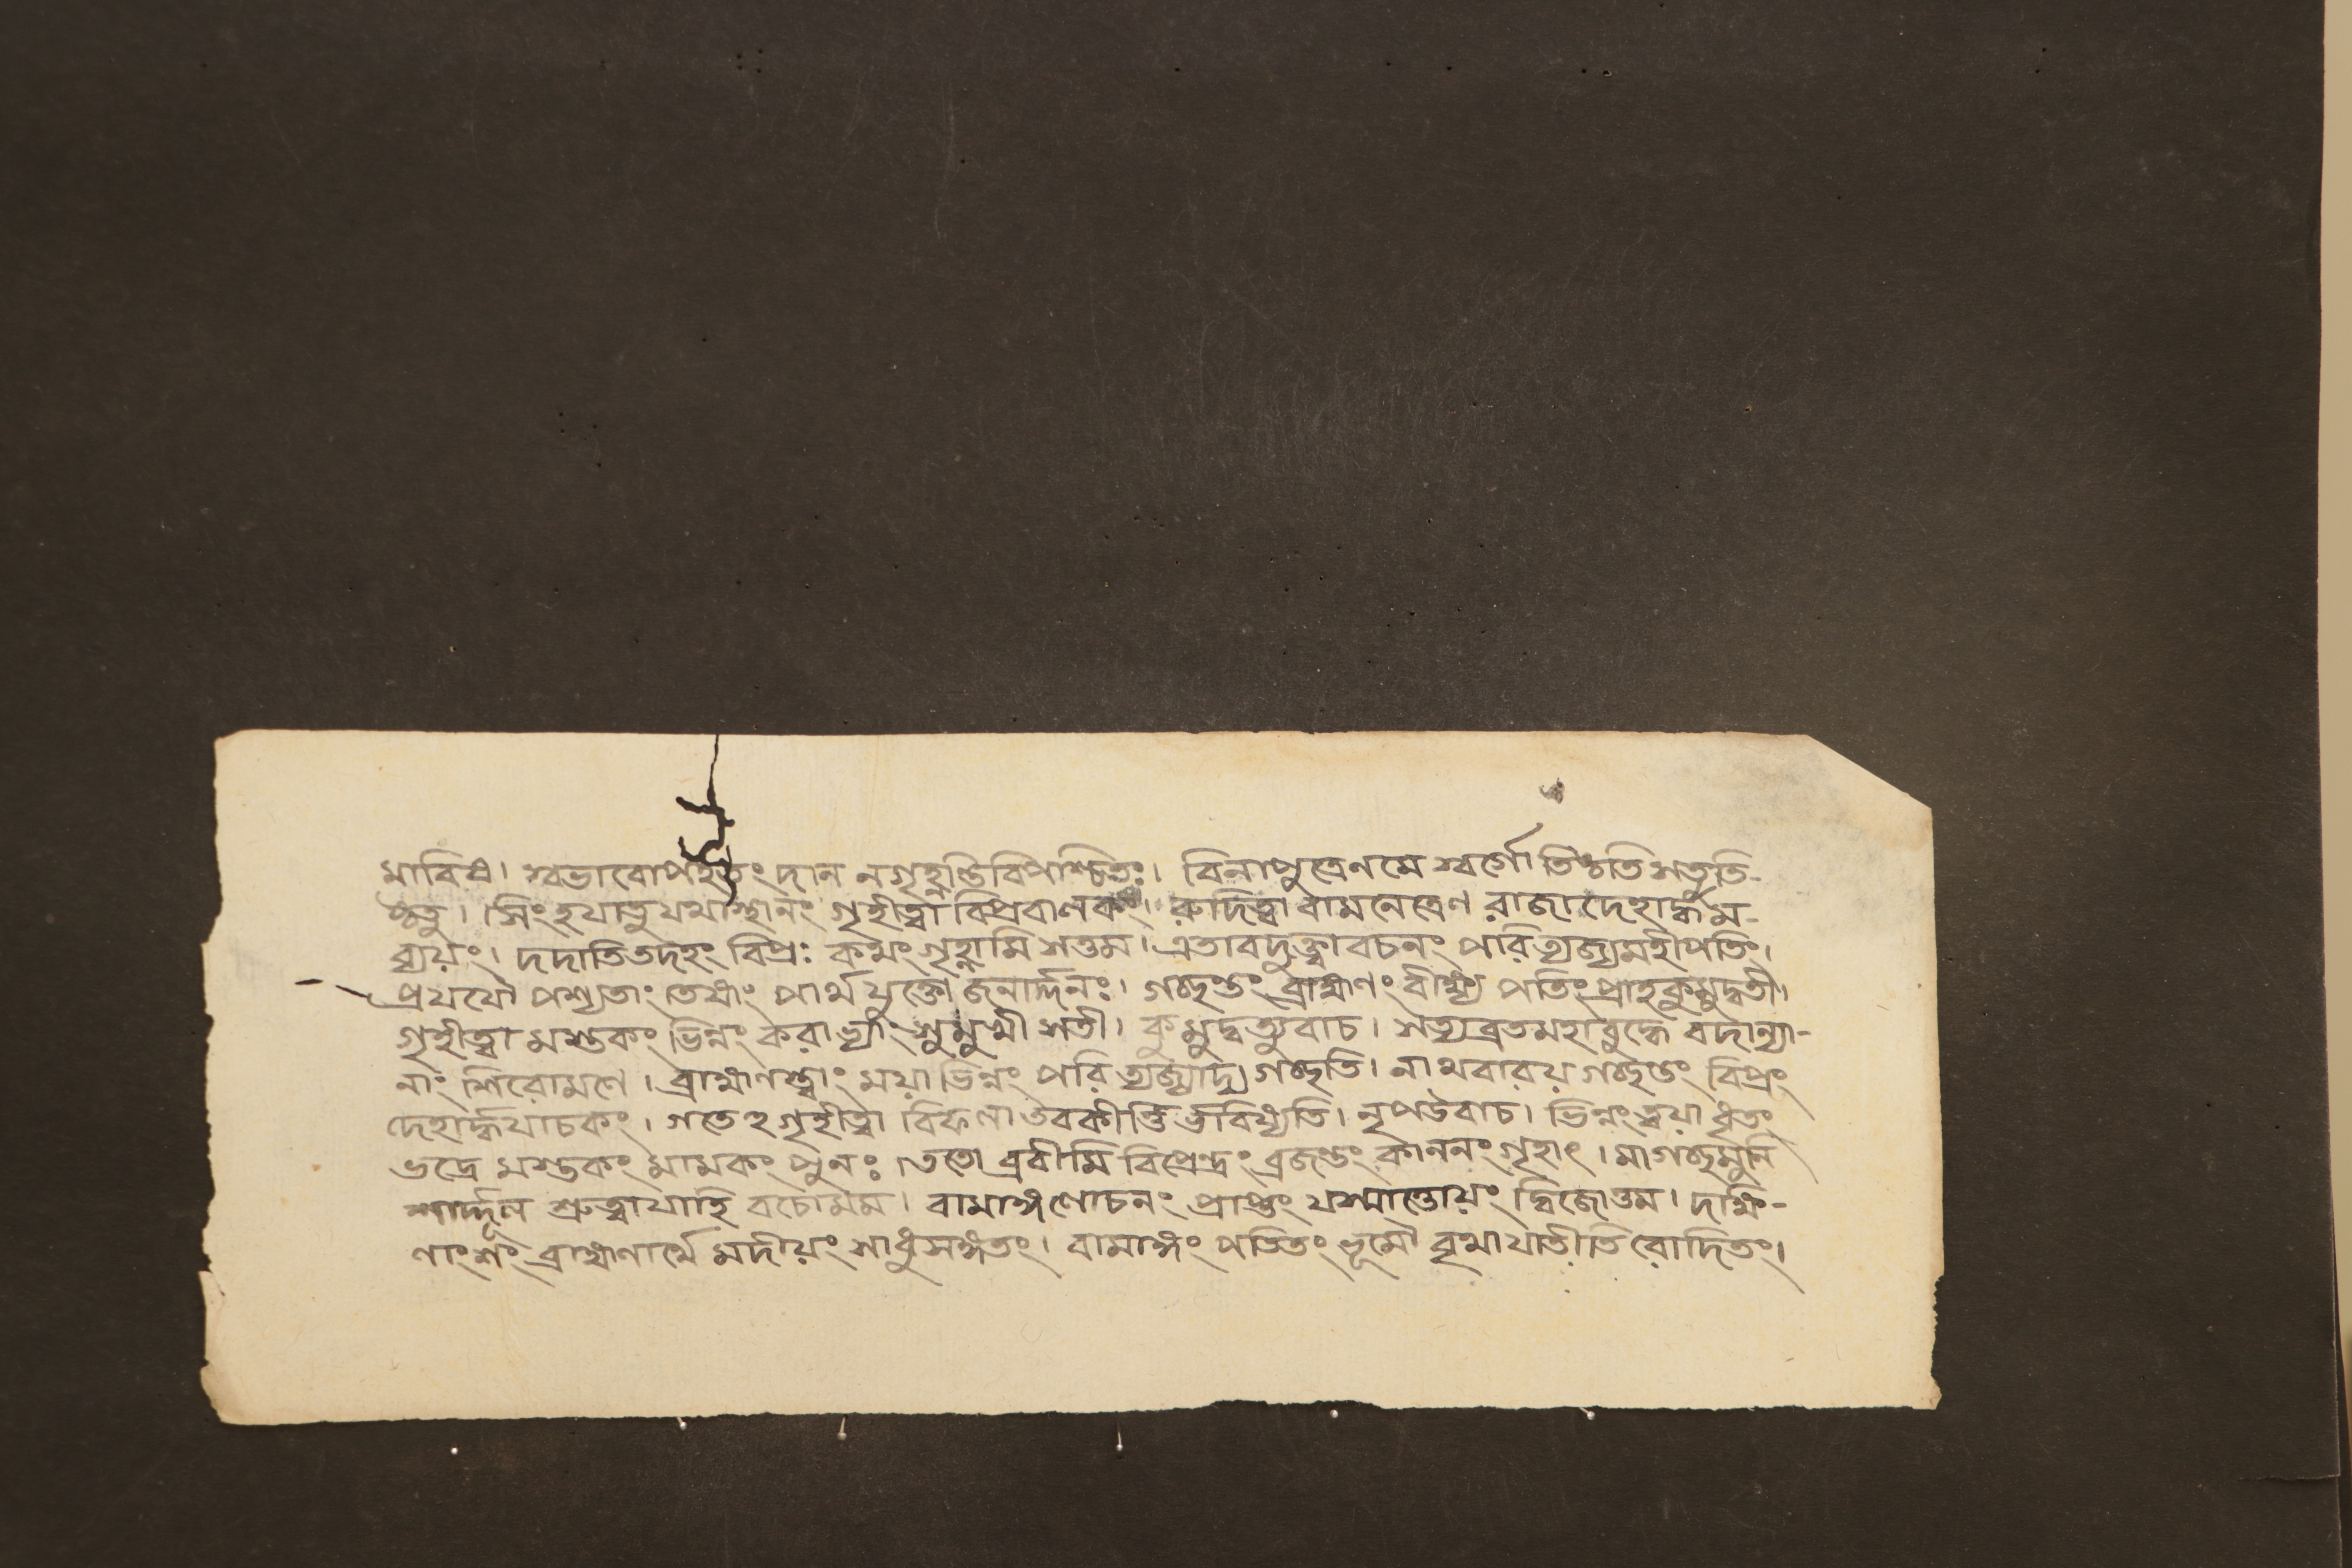 মাবিপ্র। স্বভাবোপহতং দান নগৃহ্ণন্তিবিপশ্চিতঃ। বিনাপুত্রেণমে স্বর্গো তিষ্ঠতিসতুতি-
ষ্ঠতু। সিংহযাতুযথাস্থানং গৃহীত্বা বিপ্রবালকং। রুদিত্বা বামনেত্রেণ রাজাদেহার্দ্ধম-
ব্যয়ং। দদাতিতদহং বিপ্রঃ কথং গৃহ্ণামি সত্তম। এতাবদুক্ত্বাবচনং পরিত্যজ্যমহীপতিং।
প্রযযৌ পশ্যতাং তেষাং পার্থযুক্তো জনার্দ্দনঃ। গচ্ছন্তং ব্রাহ্মণং বীক্ষ্য পতিংপ্রাহকুমুদ্বতী।
গৃহীত্বা মস্তকং ভিন্নং করাভ্যাং সুমুখী সতী। কুমুদ্বত্যুবাচ। সত্যব্রতমহাবুদ্ধে বদান্যা-
নাং শিরোমণে। ব্রাহ্মণস্ত্বাং ময়া ভিন্নং পরিত্যজ্যাদ্য গচ্ছতি। নাথবারয় গচ্ছন্তং বিপ্রং
দেহার্দ্ধযাচকং। গতেঽগৃহীত্বা বিফলা তবকীর্ত্তির্ভবিষ্যতি। নৃপউবাচ। ভিন্নংত্বয়া ধৃতং
ভদ্রে মস্তকং মামকং পুনঃ। ততো ব্রবীমি বিপ্রেন্দ্রং ব্রজন্তং কাননং গৃহাৎ। মাগচ্ছমুনি
শার্দ্দূল শ্রুত্বাযাহি বচোমম। বামাঙ্গলোচনং প্রাপ্তং যস্মাত্তোয়ং দ্বিজোত্তম। দক্ষি-
ণাংশং ব্রাহ্মণার্থে মদীয়ং সাধুসঙ্গতং। বামাঙ্গং পতিতং ভূমৌ বৃথাযাতীতিরোদিতং।